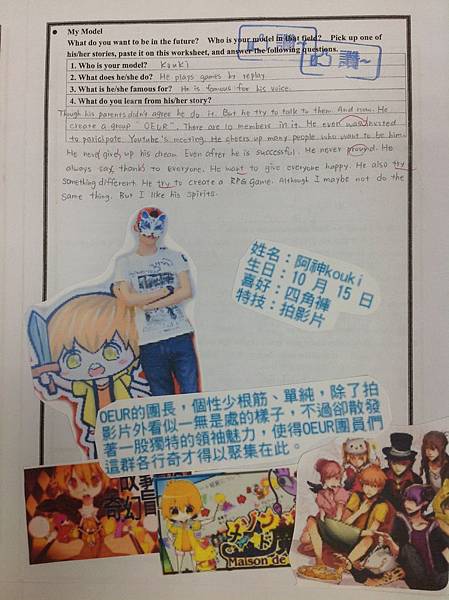 My Model
What do you want to be in the future? Who is your model in that field? Pick up one of
his/her stories, paste it on this worksheet, and answer the following questions.
讚~
讚~
1. Who is your model? Kouki
2. What does he/she do? He plays games by replay.
3. What is he/she famous for? He is famous for his voice.
4. What do you learn from his/her story?
Though his parents didn't agree he do it. But he try to talk to them. And now. He
create a group "OEUR". There are 10 members in it. He even was invited
to participate Youtube's meeting. He cheers up many people who want to be him.
He never give up his dream. Even after he is successful. He never proud. He
always say thanks to everyone. He want to give everyone happy. He also try
something different. He try to create a RPG game. Although I maybe not do the
same thing. But I like his spirits.
姓名：阿神kouki
生日：10 月 15 日
喜好：四角褲
特技：拍影片
OEUR的團長，個性少根筋、單純，除了拍
影片外看似一無是處的樣子，不過卻散發
著一股獨特的領袖魅力，使得OEUR團員們
這群各行奇才得以聚集在此。
故事
奇幻冒
メゾン
Maison de